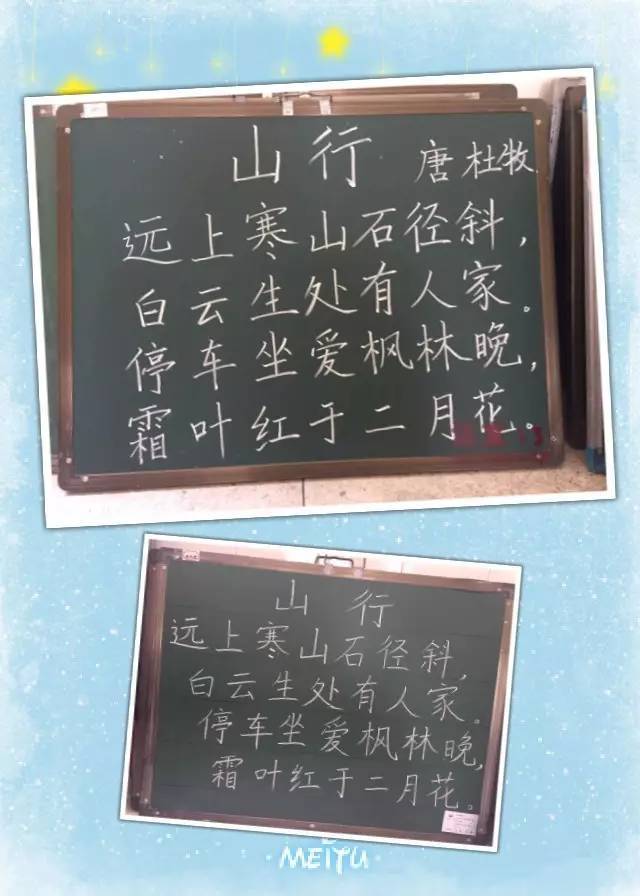 山行 唐 杜牧
远上寒山石径斜，
白云生处有人家。
停车坐爱枫林晚，
霜叶红于二月花。
山行
远上寒山石径斜，
白云生处有人家。
停车坐爱枫林晚，
霜叶红于二月花。
MEITU